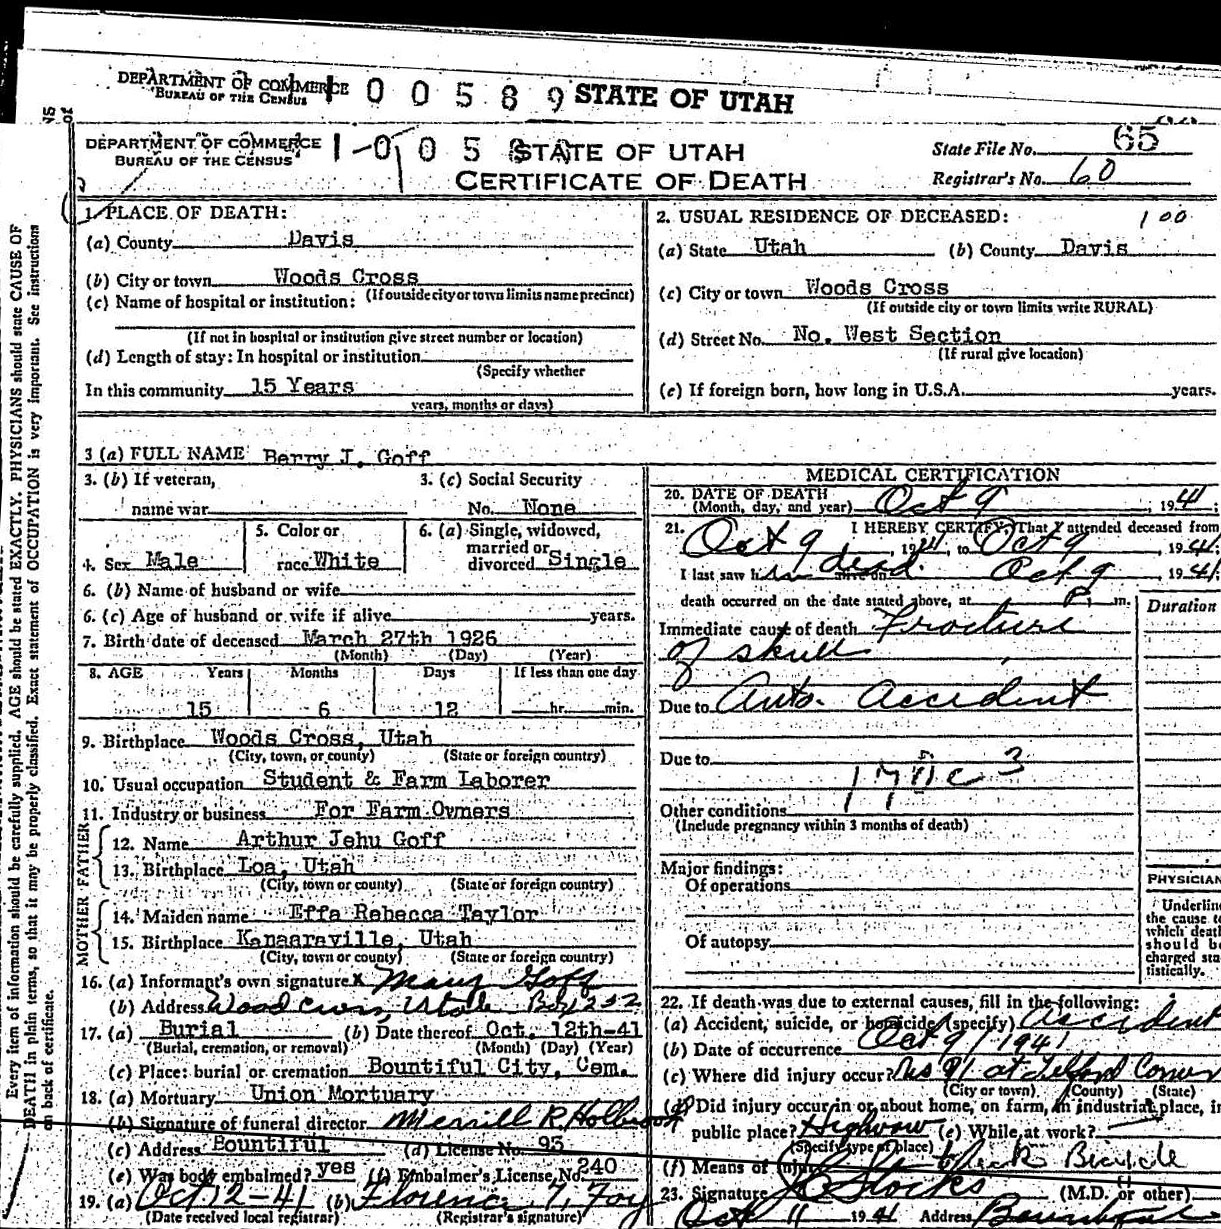 DEPARTMENT OF COMMERCE
BUREAU OF THE CENSUS
1 0 0 5 8 9 STATE OF UTAH
DEPARTMENT OF COMMERCE
BUREAU OF THE CENSUS
STATE OF UTAH
CERTIFICATE OF DEATH
State File No. 65
Registrar's No. 60
1. PLACE OF DEATH:
(a) County Davis
(b) City or town Woods Cross
(If outside city or town limits name precinct)
(c) Name of hospital or institution:
(If not in hospital or institution give street number or location)
(d) Length of stay: In hospital or institution
(Specify whether
In this community 15 Years
years, months or days)
2. USUAL RESIDENCE OF DECEASED: 1 00
(a) State Utah (b) County Davis
(c) City or town Woods Cross
(If outside city or town limits write RURAL)
(d) Street No. No. West Section
(If rural give location)
(e) If foreign born, how long in U.S.A. years.
3 (a) FULL NAME Berry J. Goff
3. (b) If veteran,
name war
3. (c) Social Security
No. None
4. Sex Male
5. Color or
race White
6. (a) Single, widowed,
married or
divorced Single
6. (b) Name of husband or wife
6. (c) Age of husband or wife if alive years.
7. Birth date of deceased March 27th 1926
(Month) (Day) (Year)
8. AGE Years Months Days If less than one day
15 6 12 hr. min.
9. Birthplace Woods Cross, Utah
(City, town, or county) (State or foreign country)
10. Usual occupation Student & Farm Laborer
11. Industry or business For Farm Owners
FATHER
12. Name Arthur Jehu Goff
13. Birthplace Loa, Utah
(City, town or county) (State or foreign country)
MOTHER
14. Maiden name Effa Rebecca Taylor
15. Birthplace Kanaaraville, Utah
(City, town or county) (State or foreign country)
16. (a) Informant's own signature x Mary Goff
(b) Address Wood Cross, Utah Box 252
17. (a) Burial (b) Date thereof Oct. 12th-41
(Burial, cremation, or removal) (Month) (Day) (Year)
(c) Place: burial or cremation Bountiful City, Cem.
18. (a) Mortuary Union Mortuary
(b) Signature of funeral director Merrill R. Holbrook
(c) Address Bountiful (d) License No. 93
(e) Was body embalmed? yes (f) Embalmer's License No. 240
19. (a) Oct 12-41 (b) Florence T. Foy
(Date received local registrar) (Registrar's signature)
MEDICAL CERTIFICATION
20. DATE OF DEATH
(Month, day, and year) Oct 9 1941;
21. I HEREBY CERTIFY, That I attended deceased from
Oct 9, 1941, to Oct 9, 1941;
I last saw him dead alive on Oct 9, 1941;
death occurred on the date stated above, at P. m.
Duration
Immediate cause of death Fracture
of skull
Due to Auto. Accident
Due to
Other conditions
(Include pregnancy within 3 months of death)
Major findings:
Of operations
Of autopsy
PHYSICIAN
Underline
the cause to
which death
should be
charged sta-
tistically.
22. If death was due to external causes, fill in the following:
(a) Accident, suicide, or homicide (specify) Accident
(b) Date of occurrence Oct 9/1941
(c) Where did injury occur? US 91 at Telford Corner
(City or town) (County) (State)
(d) Did injury occur in or about home, on farm, in industrial place, in
public place? Highway (e) While at work?
(Specify type of place)
(f) Means of injury Bicicle
23. Signature J C Stocks (M.D. or other)
Oct 11 1941 Address Bountiful
Every item of information should be carefully supplied. AGE should be stated EXACTLY. PHYSICIANS should state CAUSE OF
DEATH in plain terms, so that it may be properly classified. Exact statement of OCCUPATION is very important. See instructions
on back of certificate.